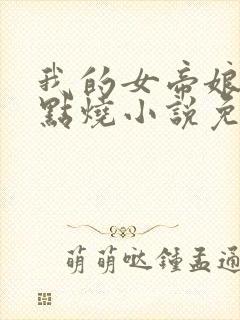 我的女帝娘
點燒小說免
萌萌哒鍾孟通